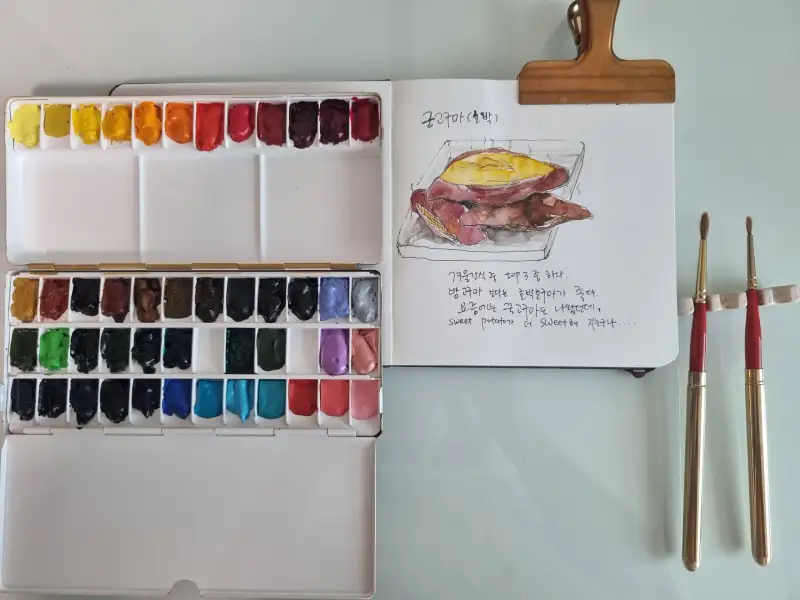 군고구마(호박)
겨울간식 중 top 3 중 하나.
밤고구마 보다는 호박고구마가 좋다.
요즘에는 꿀고구마도 나왔던데,
sweet potato가 더 sweet해 지는구나....